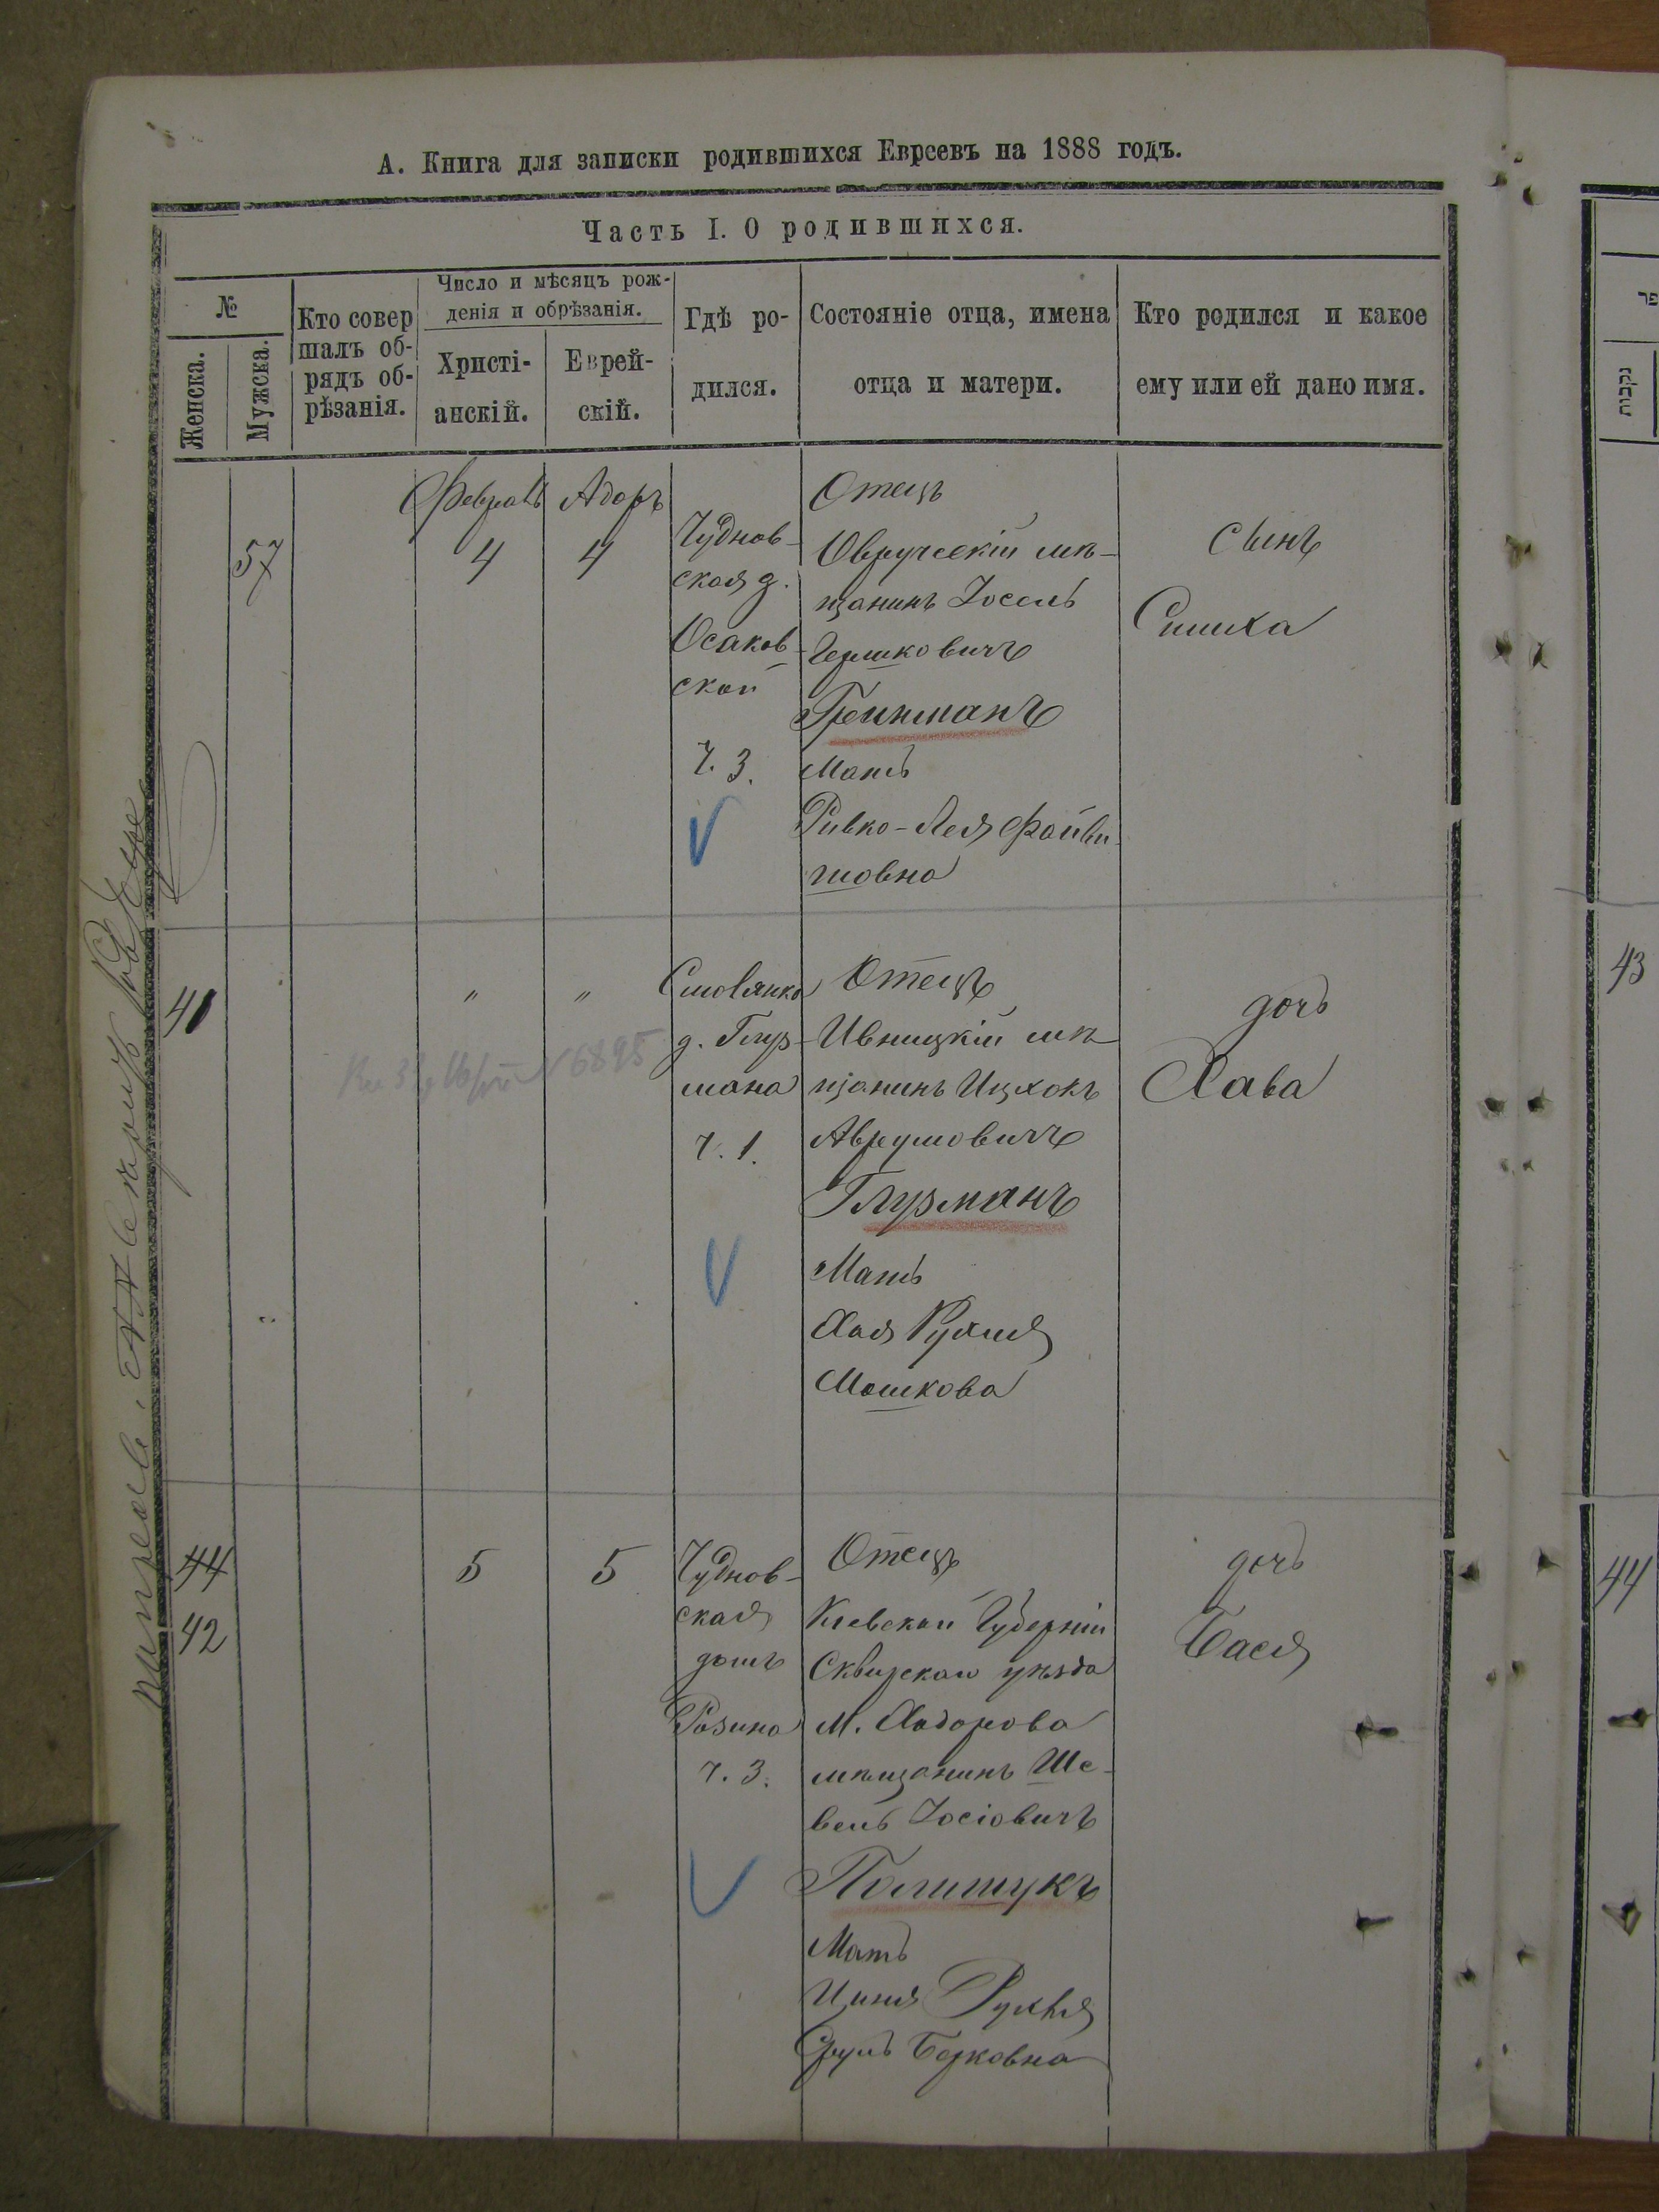 А. Книга для записки родившихся Евреевъ на 1888 годъ.
Часть I. О родившихся.
№
Женска.
Мужска.
Кто совер
шалъ об-
рядъ об-
рѣзанія.
Число и мѣсяцъ рож-
денія и обрѣзанія.
Христі-
анскій.
Еврей-
скій.
Гдѣ ро-
дился.
Состояніе отца, имена
отца и матери.
Кто родился и какое
ему или ей дано имя.
57
Февраль
4
Адаръ
4
Чуднов-
ская д.
Осаков-
ской
ч. 3.
Отецъ
Овручскій мѣ-
щанинъ Іосель
Гершковичъ
Грінманъ
Мать
Ривка-Лея Файви-
шовна
сынъ
Симха
41
"
"
6895
д. Глуз-
мана
ч. 1.
Отецъ
Ивницкій мѣ-
щанинъ Ицхокъ
Аврумовичъ
Глузманъ
Мать
Хая Рухля
Мошкова
дочь
Хава
44
42
5
5
Чуднов-
ская
домъ
Розина
ч. 3.
Отецъ
Кіевской Губерніи
Сквирскаго уѣзда
м. Ходорова
мѣщанинъ Ше-
вель Іосіовичъ
Полищукъ
Мать
Рухля
Сруль Берковна
дочь
Бася
נקבות
43
44